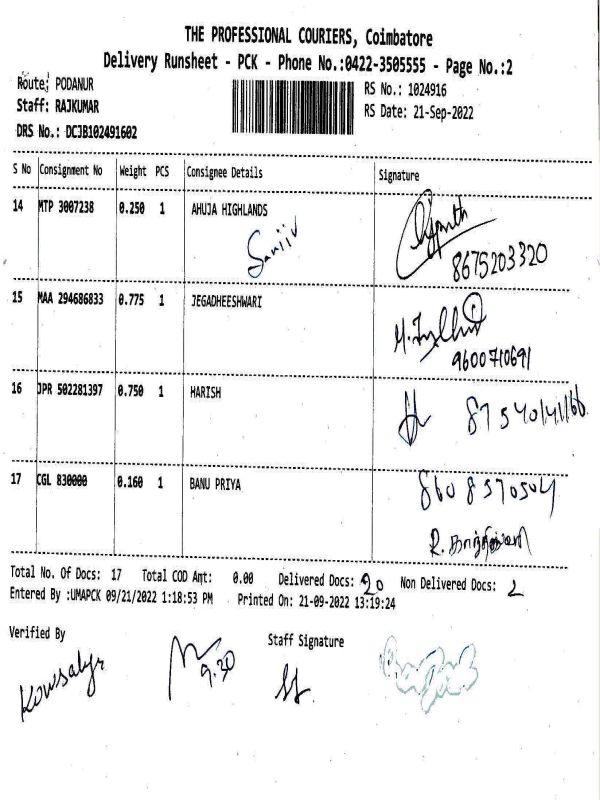 THE PROFESSIONAL COURIERS, Coimbatore
Delivery Runsheet - PCK - Phone No.:0422-3505555 - Page No.:2
Route: PODANUR
RS No.: 1024916
Staff: RAJKUMAR
RS Date: 21-Sep-2022
DRS No.: DCJB102491602
S No Consignment No Weight PCS Consignee Details Signature
14 MTP 3007238 0.250 1 AHUJA HIGHLANDS
Sanjiv
8675203320
15 MAA 294686833 0.775 1 JEGADHEESHWARI
9600710691
16 JPR 502281397 0.750 1 HARISH
17 CGL 830000 0.160 1 BANU PRIYA
8608570504
Total No. Of Docs: 17 Total COD Amt: 0.00 Delivered Docs: 20 Non Delivered Docs: 2
Entered By :UMAPCK 09/21/2022 1:18:53 PM Printed On: 21-09-2022 13:19:24
Verified By Staff Signature
Kowsalya 9.30